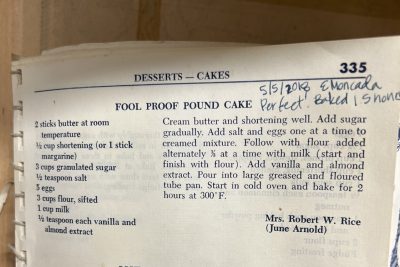 DESSERTS — CAKES 335
5/5/2018 EMoncada
Perfect. Baked 1
FOOL PROOF POUND CAKE
2 sticks butter at room
temperature
½ cup shortening (or 1 stick
margarine)
3 cups granulated sugar
½ teaspoon salt
5 eggs
3 cups flour, sifted
1 cup milk
½ teaspoon each vanilla and
almond extract
Cream butter and shortening well. Add sugar
gradually. Add salt and eggs one at a time to
creamed mixture. Follow with flour added
alternately ⅓ at a time with milk (start and
finish with flour). Add vanilla and almond
extract. Pour into large greased and floured
tube pan. Start in cold oven and bake for 2
hours at 300°F.
Mrs. Robert W. Rice
(June Arnold)